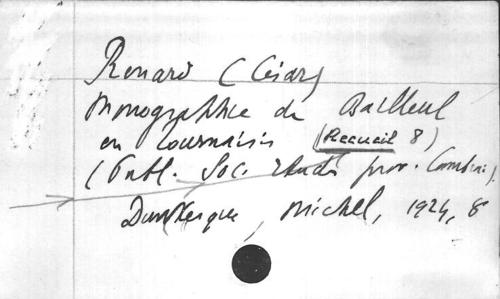 Renard (César)
Monographie de Bailleul
en Tournaisis (Recueil 8)
(Publ. Soc. Études prov. Cambrai).
Dunkerque, Michel, 1924, 8